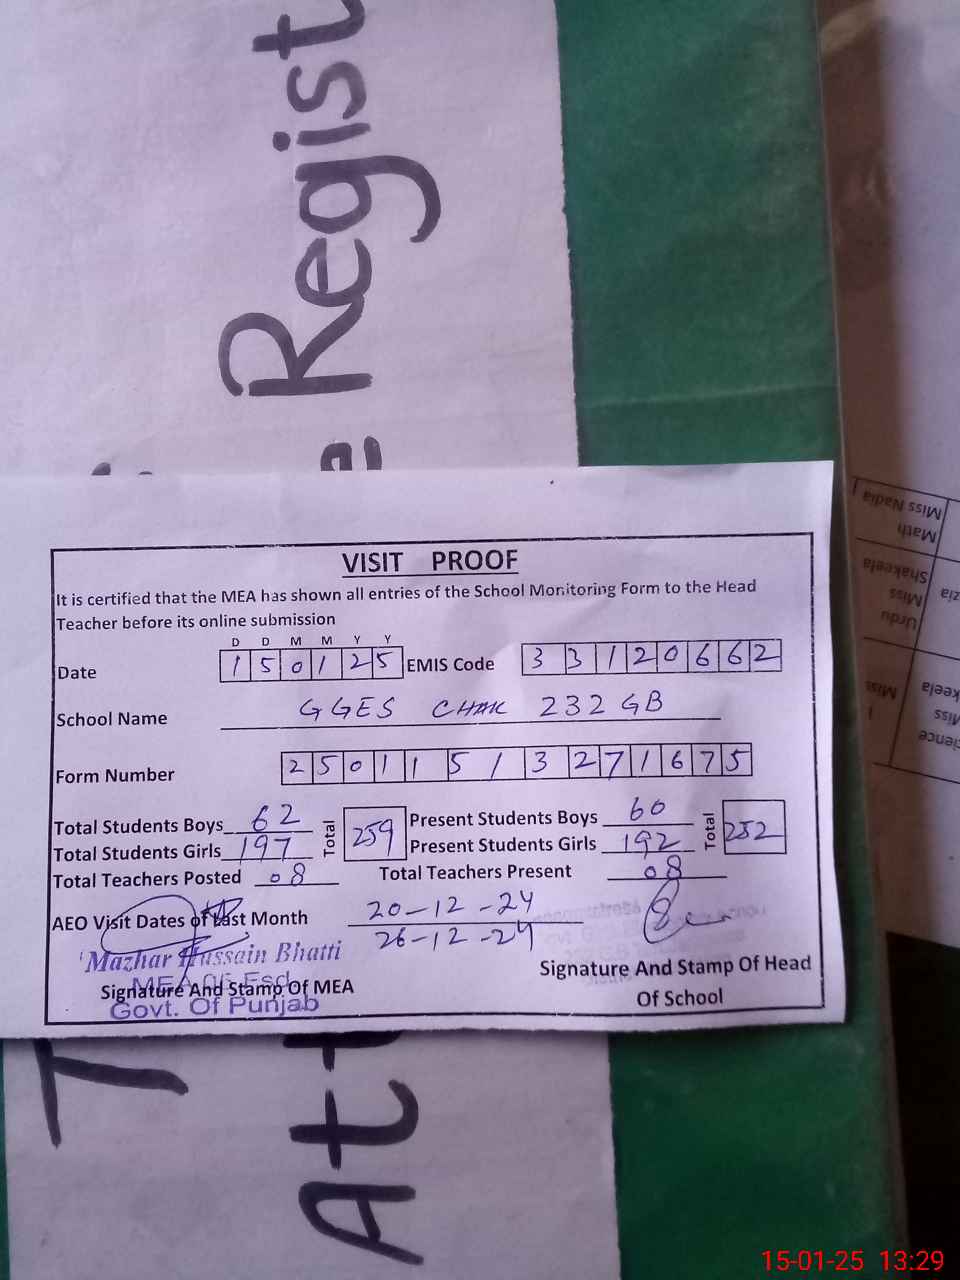 Regist
VISIT PROOF
It is certified that the MEA has shown all entries of the School Monitoring Form to the Head
Teacher before its online submission
D D M M Y Y
Date 1 5 0 1 2 5 EMIS Code 3 3 1 2 0 6 6 2
School Name GGES CHAK 232 GB
Form Number 2 5 0 1 1 5 1 3 2 7 1 6 7 5
Total Students Boys 62 Total 259 Present Students Boys 60 Total 252
Total Students Girls 197 Present Students Girls 192
Total Teachers Posted 08 Total Teachers Present 08
AEO Visit Dates of Last Month 20-12-24
26-12-24
Mazhar Hussain Bhatti
MEA
Signature And Stamp Of MEA
Govt. Of Punjab
Signature And Stamp Of Head
Of School
Att
Miss Nadia
Math
Shakeela
Miss
Urdu
Miss
15-01-25 13:29